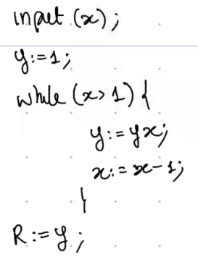 input (x);
y:=1;
while (x>1) {
y:=yx;
x:=x-1;
}
R:=y;